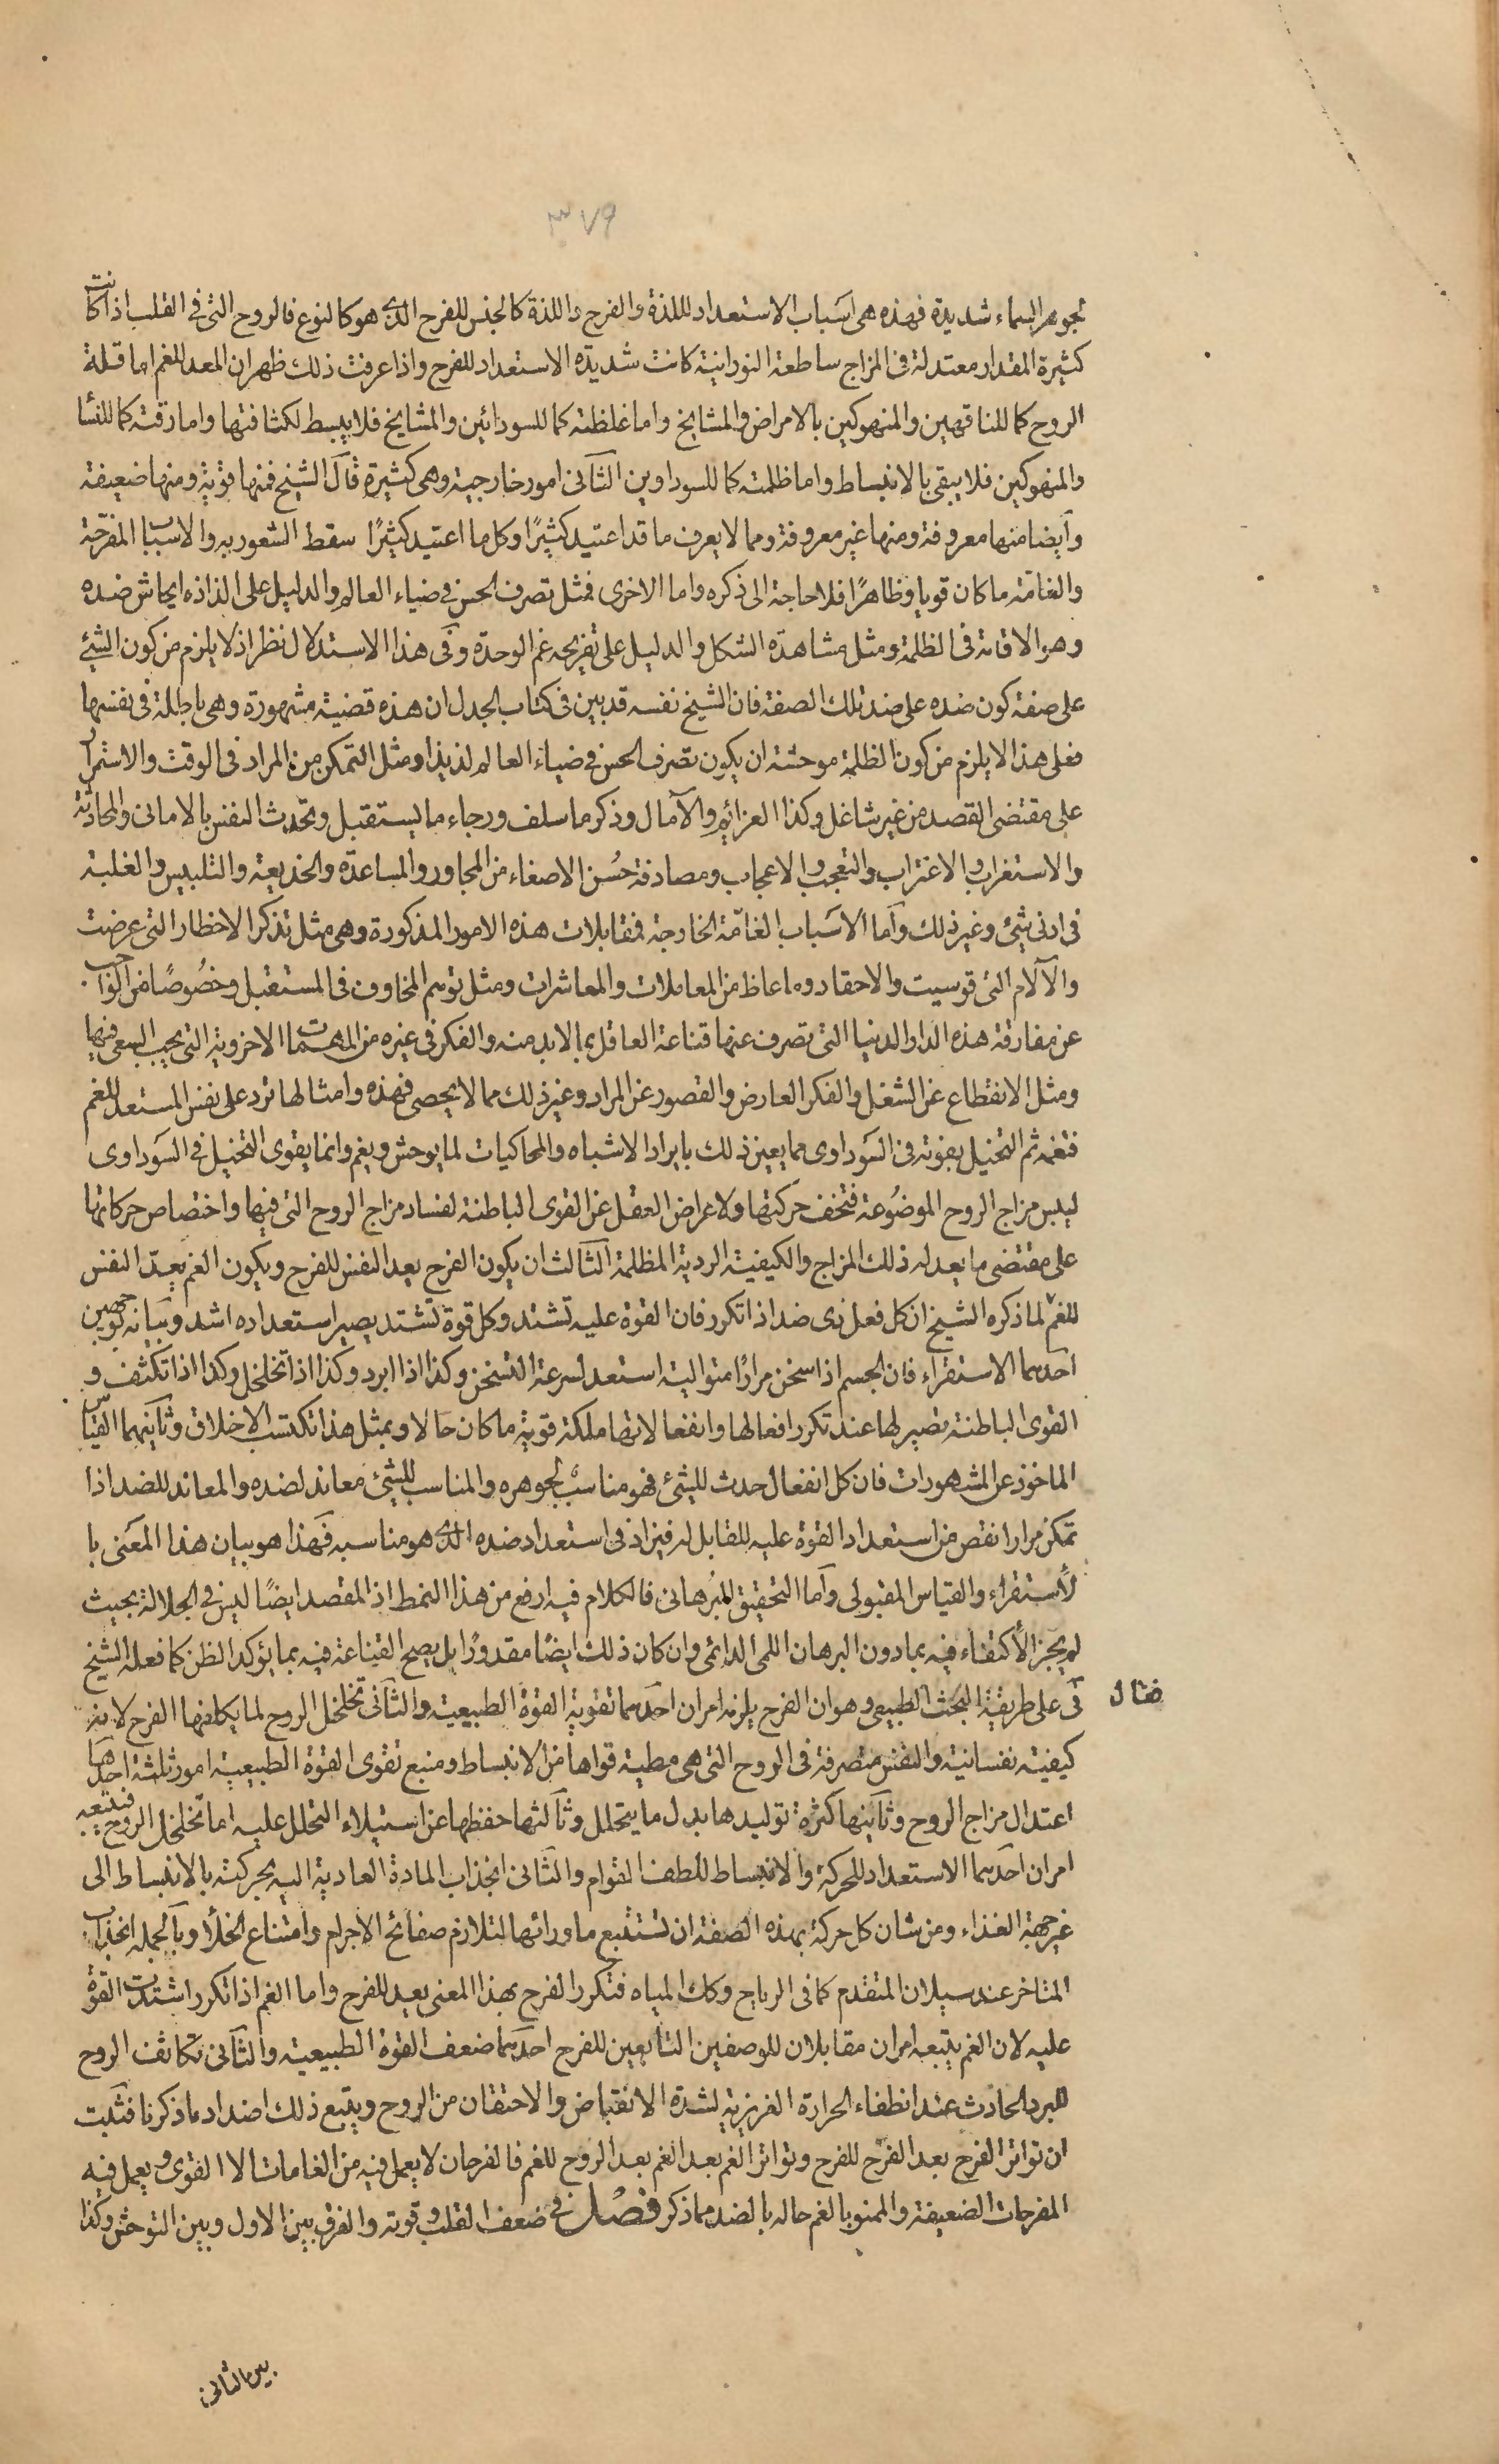 ٣٧٩
بجوهر السماء شديدة فهذه هى اسباب الاستعداد لللذة والفرح واللذة كالجنس للفرح الذى هو كالنوع فالروح التى فى القلب اذا كانت
كثيرة المقدار معتدلة فى المزاج ساطعة النورانية كانت شديدة الاستعداد للفرح واذا عرفت ذلك ظهر ان المعد للغم اما قلة
الروح كما للناقهين والمنهوكين بالامراض والمشايخ واما غلظته كما للسودائين والمشايخ فلا ينبسط لكثافتها واما رقته كما للنسا
والمنهوكين فلا يبقى بالانبساط واما ظلمته كما للسوداوين الثانى امور خارجية وهى كثيرة قال الشيخ فمنها قوية ومنها ضعيفة
وايضا منها معروفة ومنها غير معروفة ومما لا يعرف ما قد اعتيد كثيرًا وكل ما اعتيد كثيرًا سقط الشعور به والاسباب المفرحة
والغامة ما كان قويا وظاهرًا فلا حاجة الى ذكره واما الاخرى فمثل تصرف الحس فى ضياء العالم والدليل على الذاذه ايحاش ضده
وهو الاقامة فى الظلمة ومثل مشاهدة الشكل والدليل على تفريحه غم الوحدة وفى هذا الاستدلال نظر اذ لا يلزم من كون الشئ
على صفة كون ضده على ضد تلك الصفة فان الشيخ نفسه قد بين فى كتاب الجدل ان هذه قضية مشهورة وهى باطلة فى نفسها
فعلى هذا لا يلزم من كون الظلمة موحشة ان يكون تصرف الحس فى ضياء العالم لذيذا ومثل التمكن من المراد فى الوقت والاستمرار
على مقتضى القصد من غير شاغل وكذا العزائم والآمال وذكر ما سلف ورجاء ما يستقبل وتحدث النفس بالامانى والمحادثة
والاستغراب والاغتراب والتعجب والاعجاب ومصادفة حسن الاصغاء من المجاور والمساعدة والخديعة والتلبيس والغلبة
فى ادنى شئ وغير ذلك واما الاسباب الغامّة الخارجة فمقابلات هذه الامور المذكورة وهى مثل تذكر الاخطار التى عرضت
والآلام التى قوسيت والاحقاد وما غاظ من المعاملات والمعاشرات ومثل توهم المخاوف فى المستقبل وخصوصًا من الواجب
عن مفارقة هذه الدار الدنيا التى تصرف عنها قناعة العاقل بما لا بد منه والفكر فى غيره من المهمات الاخروية التى يجب السعى فيها
ومثل الانقطاع عن الشغل والفكر العارض والقصور عن المراد وغير ذلك مما لا يحصى فهذه وامثالها ترد على نفس المستعد للغم
فتغمه ثم التخيل بقوته فى السوداوى مما يعين ذلك بايراد الاشباه والمحاكيات لما يوحش ويغم وانما يقوى التخيل فى السوداوى
ليبس مزاج الروح الموضوعة فتخف حركتها ولاعراض العقل عن القوى الباطنة لفساد مزاج الروح التى فيها واختصاص حركاتها
على مقتضى ما يعد له ذلك المزاج والكيفية الردية المظلمة الثالث ان يكون الفرح يعد النفس للفرح ويكون الغم يعدّ النفس
للغم لما ذكره الشيخ ان كل فعل ذى ضد اذا تكرر فان القوة عليه تشتد وكل قوة تشتد يصير استعداده اشد وبيانه بوجهين
احدهما الاستقراء فان الجسم اذا سخن مرارًا متوالية استعد لسرعة التسخن وكذا اذا ابرد وكذا اذا تخلخل وكذا اذا تكثف و
القوى الباطنة تصير لها عند تكرر افعالها وانفعالاتها ملكة قوية ما كان حالا وبمثل هذا تكتسب الاخلاق وثانيهما القياس
الماخوذ عن المشهورات فان كل انفعال حدث للشئ فهو مناسب لجوهره والمناسب للشئ معاند لضده والمعاند للضد اذا
تمكن مرارا نقص من استعداد القوة عليه للقابل له فيزاد فى استعداد ضده الذى هو مناسبه فهذا هو بيان هذا المعنى با
لأستقراء والقياس المقبولى واما التحقيق البرهانى فالكلام فيه ارفع من هذا النمط اذ المقصد ايضًا ليس فى الجلالة بحيث
لم يجز الأكتفاء فيه بما دون البرهان اللمى الدائمى وان كان ذلك ايضًا مقدورًا بل يصح القناعة فيه بما يؤكد الظن كما فعله الشيخ
فى على طريقة البحث الطبيعى وهو ان الفرح يلزمه امران احدهما تقوية القوة الطبيعية والثانى تخلخل الروح لما يكافها الفرح لانه
كيفية نفسانية والنفس متصرفة فى الروح التى هى مطية قواها من الانبساط ومنبع تقوى القوة الطبيعية امور ثلثة احدها
اعتدال مزاج الروح وثانيها كثرة توليدها بدل ما يتحلل وثالثها حفظها عن استيلاء التحلل عليه اما تخلخل الروح فيتبعه
امران احدهما الاستعداد للحركة والانبساط للطف القوام والثانى انجذاب المادة العادية اليه بحركته بالانبساط الى
غير جهة الغذاء ومن شان كل حركة بهذه الصفة ان تستتبع ما ورائها لتلازم صفائح الاجرام وامتناع الخلأ وبالجملة انجذاب
المتاخر عند سيلان المتقدم كما فى الرياح وكك المياه فتكرر الفرح بهذا المعنى يعد للفرح واما الغم اذا تكرر اشتدت القوة
عليه لان الغم يتبعه امران مقابلان للوصفين التابعين للفرح احدهما ضعف القوة الطبيعية والثانى تكاثف الروح
للبرد الحادث عند انطفاء الحرارة الغريزية لشدة الانقباض والاحتقان من الروح ويتبع ذلك اضداد ما ذكرنا فثبت
ان تواتر الفرح يعد الفرح للفرح وتواتر الغم يعد الغم يعد الروح للغم فالفرحان لا يعمل فيه من الغامات الا القوى ويعمل فيه
المفرحات الضعيفة والممنو بالغم حاله بالضد مما ذكر فصل فى ضعف القلب وقوته والفرق بين الاول وبين التوحش وكذا
بين الثانى